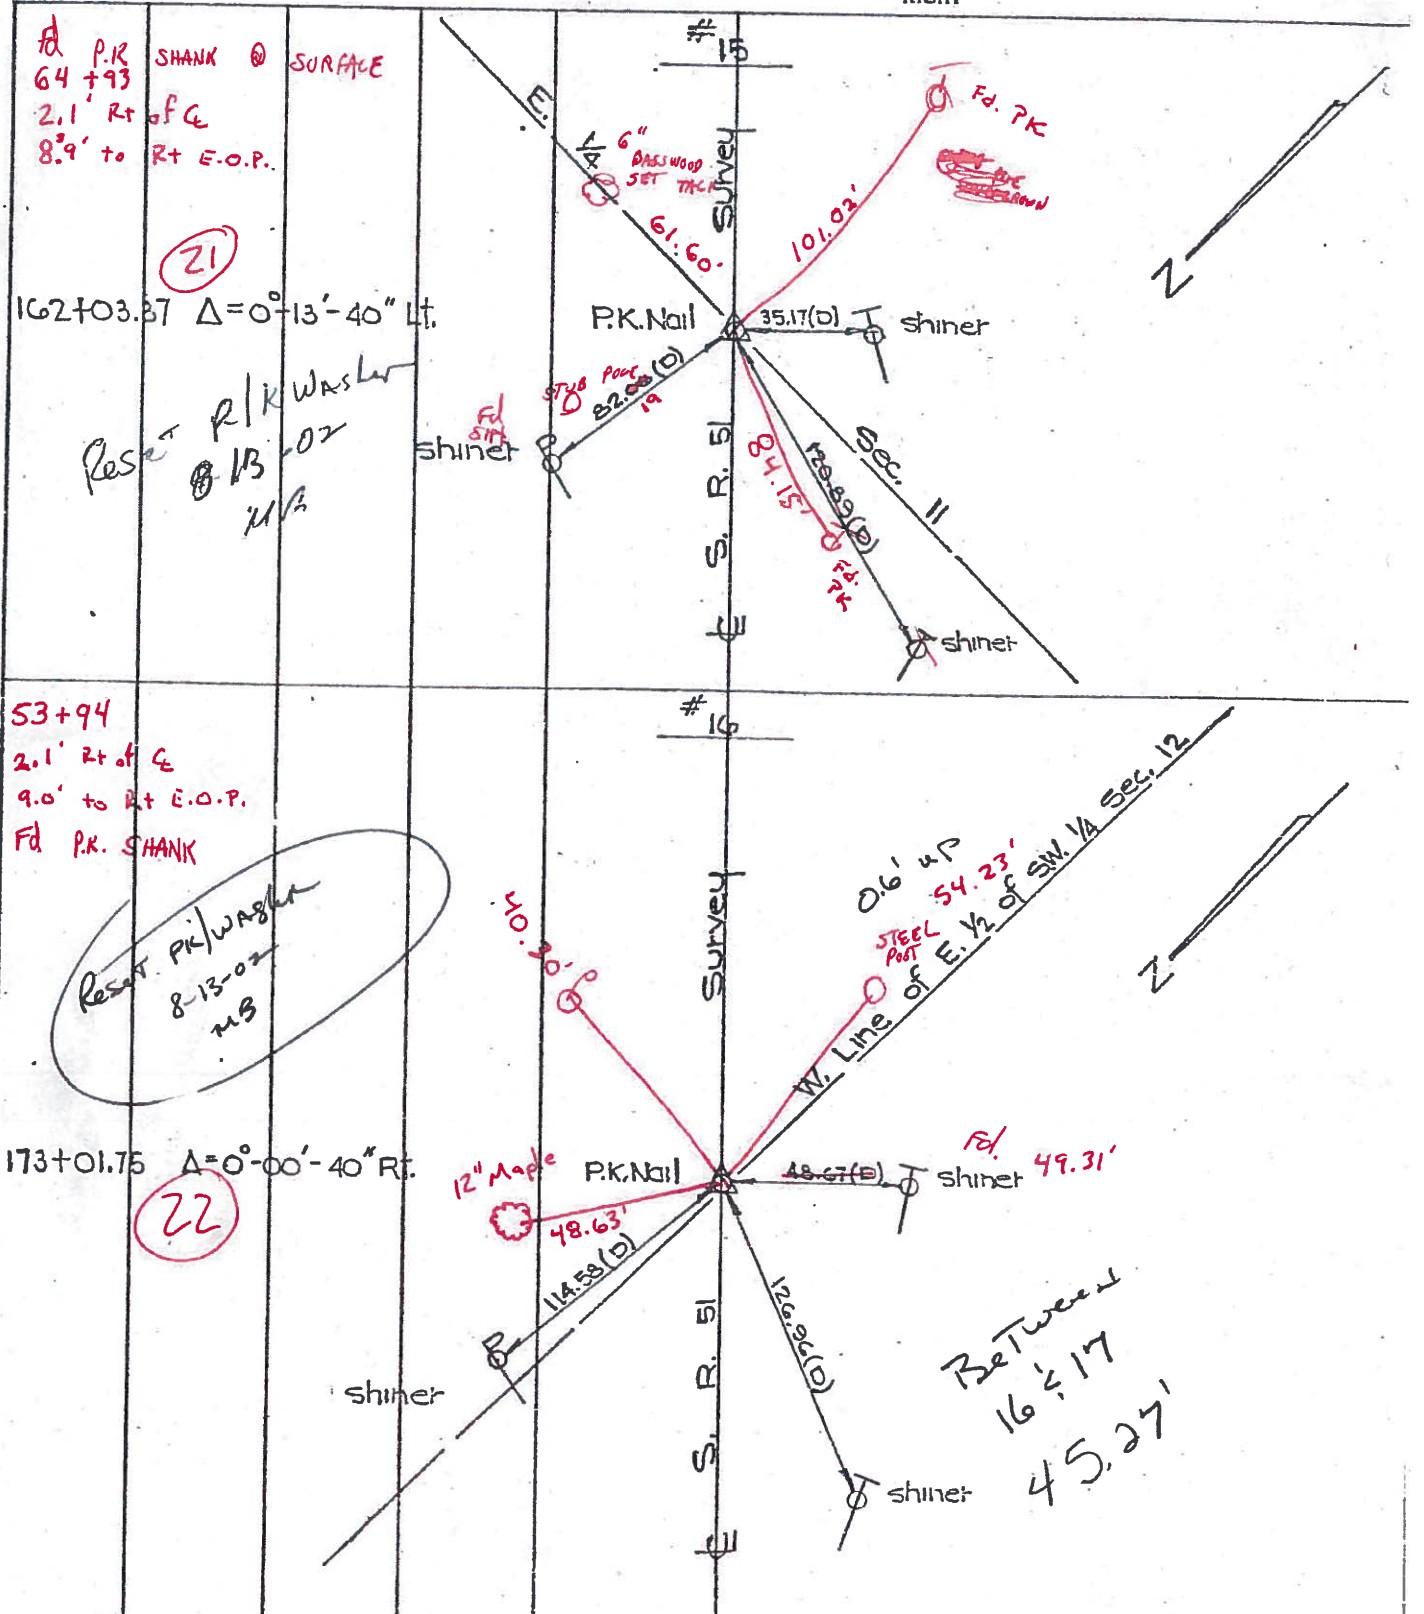 Fd P.K SHANK @ SURFACE
64 +93
2.1' Rt of ℄
8.9' to Rt E.O.P.
21
162+03.37 Δ=0°-13'-40" Lt.
Reset P/K WASher
8/13-02
MB
#15
E. 1/4
6"
BASSWOOD
SET TACK
61.60'
Survey
101.02'
Fd. PK
N
P.K. Nail
35.17(D)
shiner
STUB POLE
82.00(D)
19
Fd
shiner
84.15'
Fd.
PK
120.89(D)
shiner
Sec. 11
S. R. 51
℄
53+94
2.1' Rt of ℄
9.0' to Rt E.O.P.
Fd P.K. SHANK
Reset PK/WASher
8-13-02
MB
173+01.75 Δ=0°-00'-40" Rt.
22
#16
Survey
40.30'
0.6' up
54.23'
STEEL
POST
W. Line of E. 1/2 of SW. 1/4 Sec. 12
N
12" Maple
48.63'
P.K. Nail
48.67(D)
shiner
Fd.
49.31'
114.58(D)
shiner
126.96(D)
shiner
S. R. 51
℄
BeTween
16 & 17
45.27'